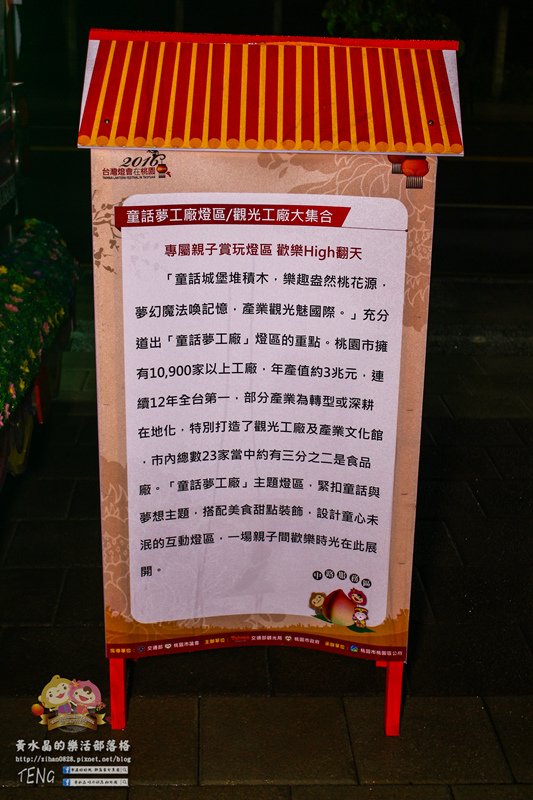 2016
台灣燈會在桃園
TAIWAN LANTERN FESTIVAL IN TAOYUAN
童話夢工廠燈區/觀光工廠大集合
專屬親子賞玩燈區 歡樂High翻天
「童話城堡堆積木，樂趣盎然桃花源，
夢幻魔法喚記憶，產業觀光魅國際。」充分
道出「童話夢工廠」燈區的重點。桃園市擁
有10,900家以上工廠，年產值約3兆元，連
續12年全台第一，部分產業為轉型或深耕
在地化，特別打造了觀光工廠及產業文化館
，市內總數23家當中約有三分之二是食品
廠。「童話夢工廠」主題燈區，緊扣童話與
夢想主題，搭配美食甜點裝飾，設計童心未
泯的互動燈區，一場親子間歡樂時光在此展
開。
中路服務區
指導單位： 交通部 桃園市議會 主辦單位： 交通部觀光局 桃園市政府 承辦單位： 桃園市桃園區公所
黃水晶的樂活部落格
http://sihan0828.pixnet.net/blog
TENG